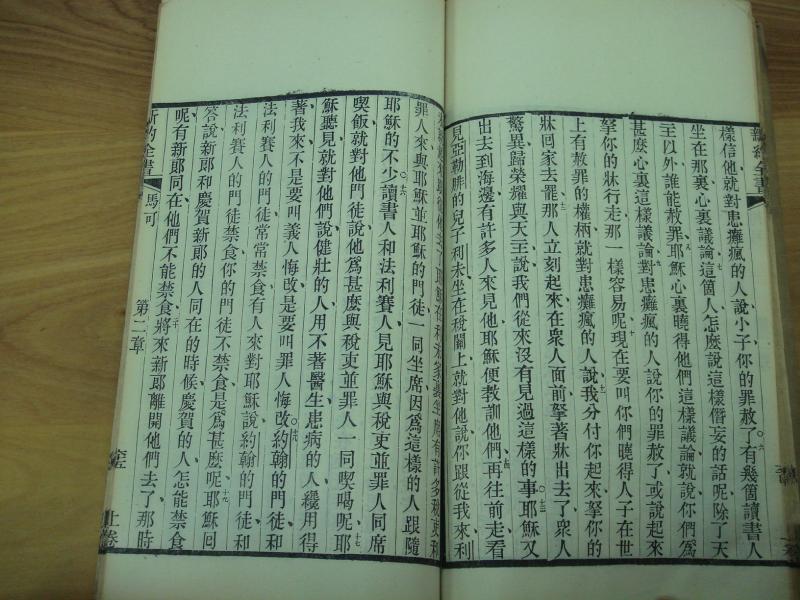 新約全書
樣信他就對患癱瘋的人說小子你的罪赦了有幾箇讀書人
坐在那裏心裏議論這箇人怎麼說這樣僭妄的話呢除了天
主以外誰能赦罪耶穌心裏曉得他們這樣議論就說你們爲
甚麼心裏這樣議論對患癱瘋的人說你的罪赦了或說起來
拏你的牀行走那一樣容易呢現在要叫你們曉得人子在世
上有赦罪的權柄就對患癱瘋的人說我分付你起來拏你的
牀回家去罷那人立刻起來在衆人面前拏著牀出去了衆人
驚異歸榮耀與天主說我們從來沒有見過這樣的事耶穌又
出去到海邊有許多人來見他耶穌便教訓他們再往前走看
見亞勒腓的兒子利未坐在稅關上就對他說你跟從我來利
罪人來與耶穌並耶穌的門徒一同坐席因爲這樣的人跟隨
耶穌的不少讀書人和法利賽人見耶穌與稅吏並罪人同席
喫飯就對他門徒說他爲甚麼與稅吏並罪人一同喫喝呢耶
穌聽見就對他們說健壯的人用不著醫生患病的人纔用得
著我來不是要叫義人悔改是要叫罪人悔改約翰的門徒和
法利賽人的門徒常常禁食有人來對耶穌說約翰的門徒和
法利賽人的門徒禁食你的門徒不禁食是爲甚麼呢耶穌回
答說新郎和慶賀新郎的人同在的時候慶賀的人怎能禁食
呢有新郎同在他們不能禁食將來新郎離開他們去了那時
新約全書 馬可 第二章 上卷